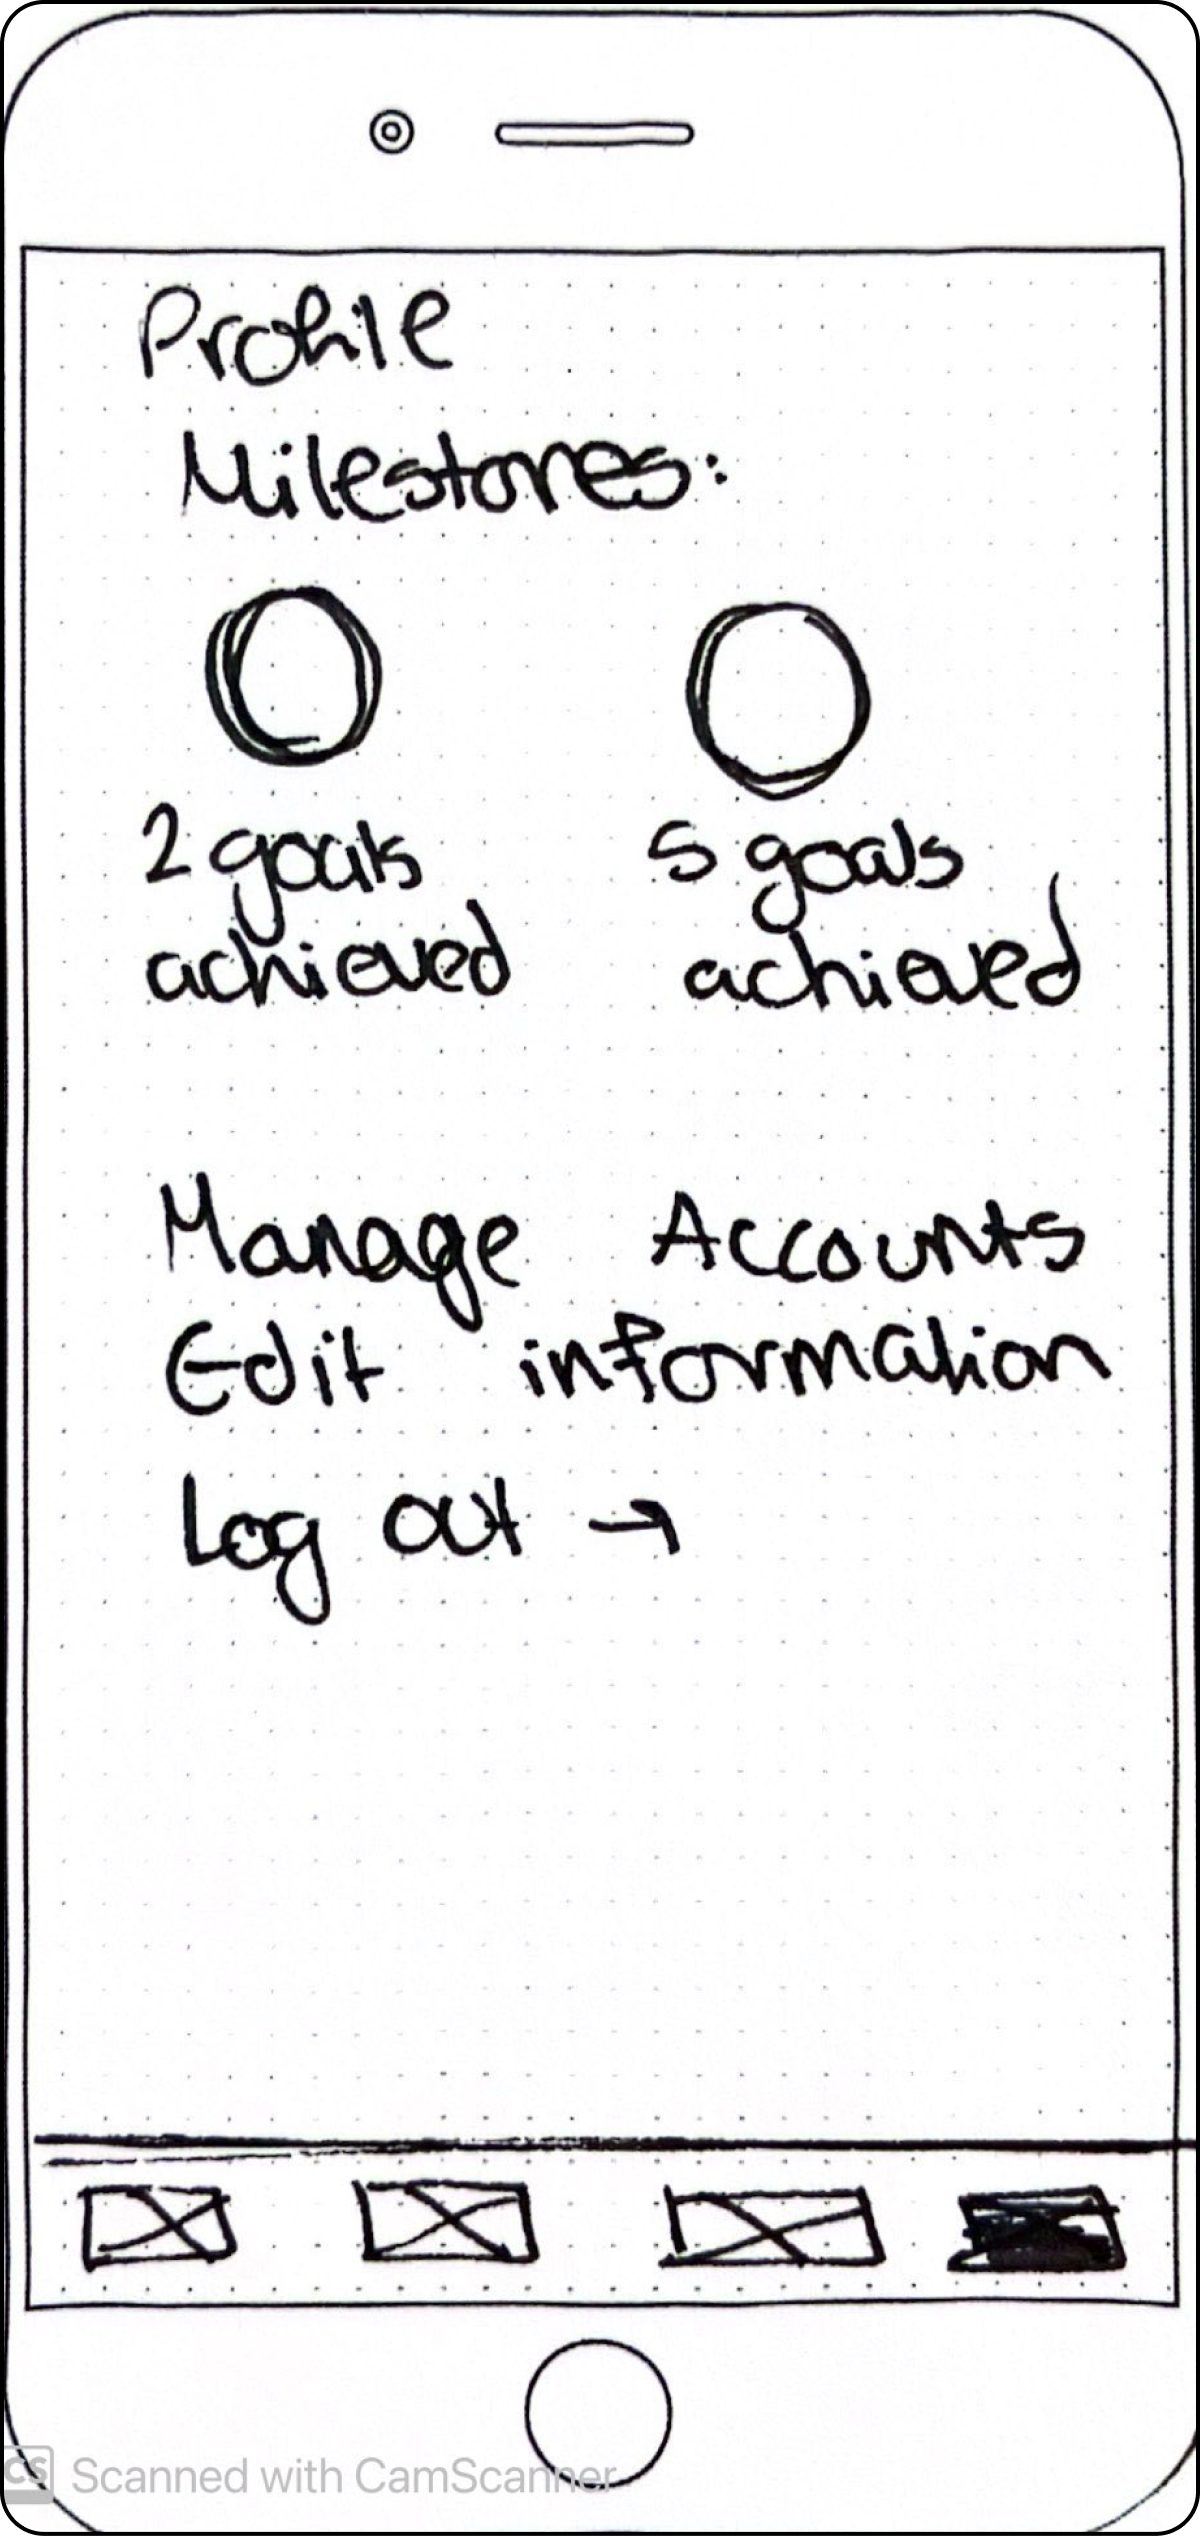 Profile
Milestones:
2 goals 5 goals
achieved achieved
Manage Accounts
Edit information
Log out →
CS Scanned with CamScanner